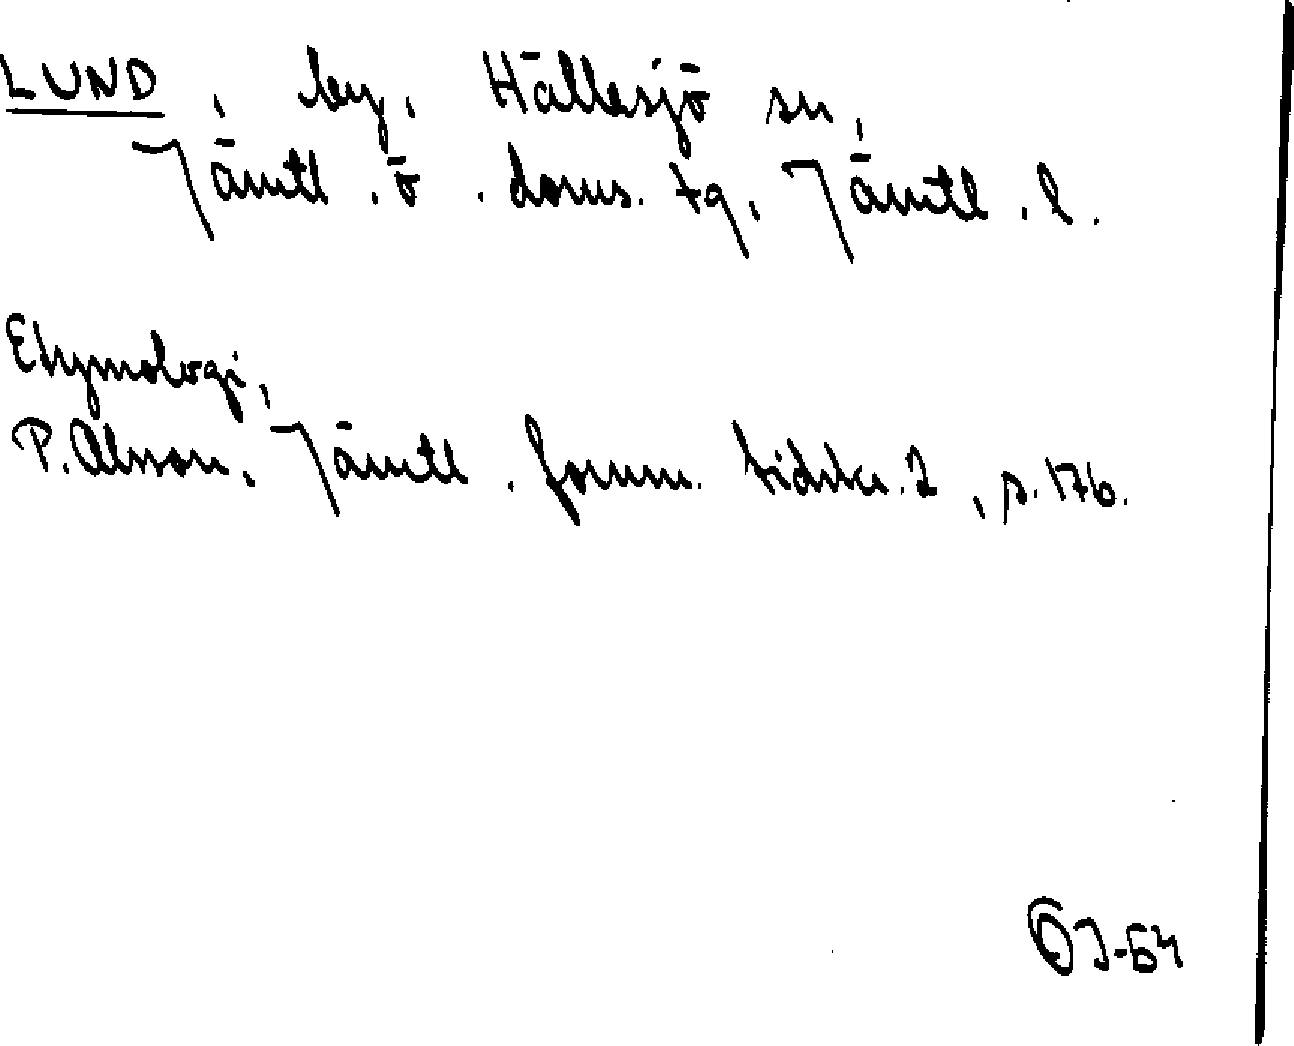 LUND, by, Hällesjö sn,
Jämtl. ö. doms. tg, Jämtl. l.
Etymologi,
P. Olsson, Jämtl. fornm. tidskr. 2, s. 176.
ÖJ-54